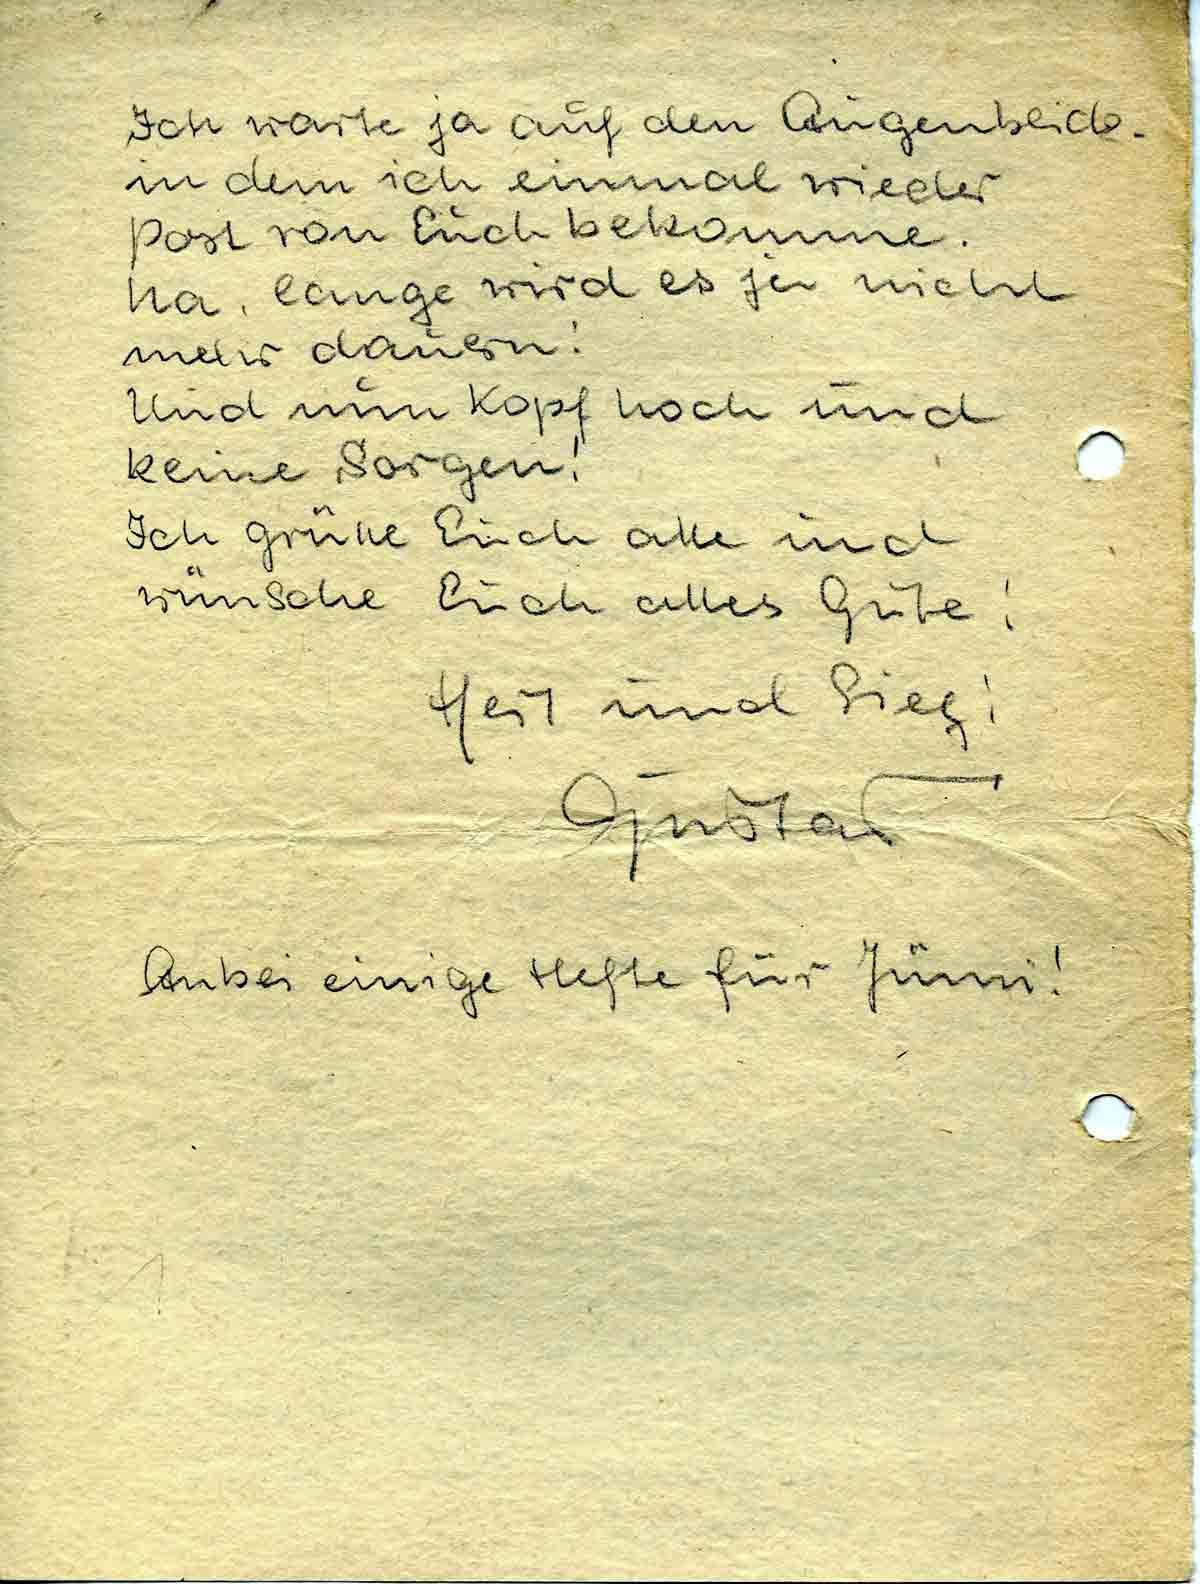 Ich warte ja auf den Augenblick.
in dem ich einmal wieder
Post von Euch bekomme.
Na, lange wird es ja nicht
mehr dauern!
Und nun Kopf hoch und
keine Sorgen!
Ich grüße Euch alle und
wünsche Euch alles Gute!
Heil und Sieg!
Gustav
Anbei einige Hefte für Jümi!